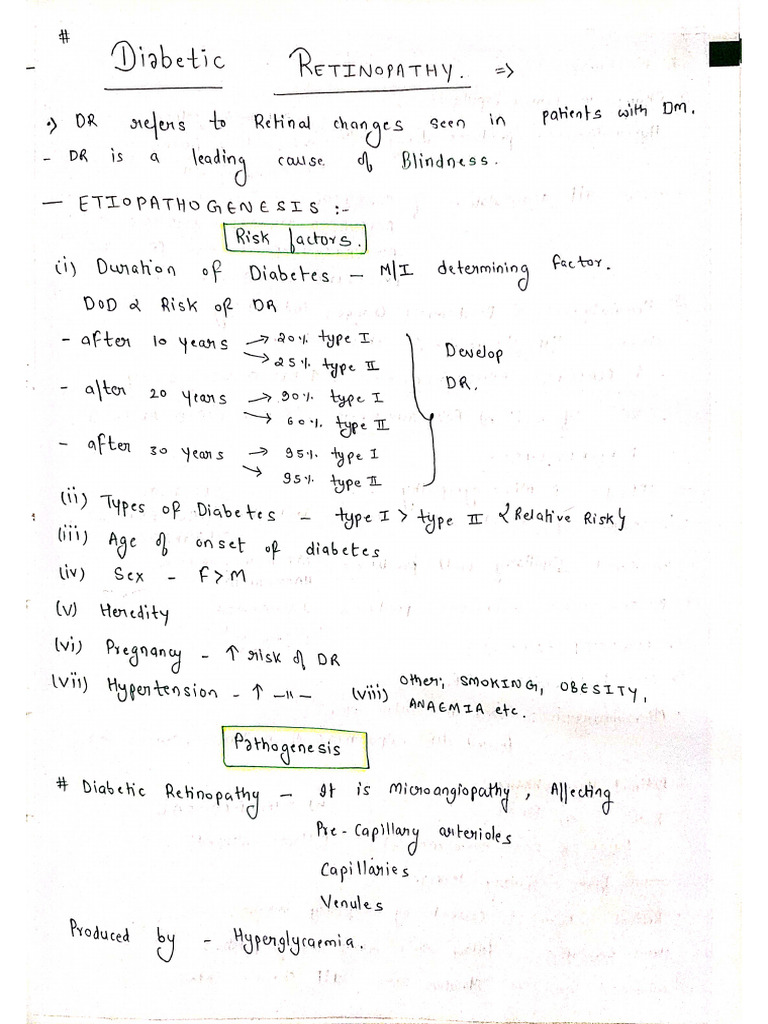 #
Diabetic RETINOPATHY. ⇒
•) DR refers to Retinal changes seen in patients with DM.
- DR is a leading cause of Blindness.
— ETIOPATHOGENESIS :-
Risk factors.
(i) Duration of Diabetes – M/I determining factor.
DOD α Risk of DR
- after 10 years → 20% type I
→ 25% type II
- after 20 years → 90% type I
→ 60% type II
- after 30 years → 95% type I
→ 95% type II
Develop
DR.
(ii) Types of Diabetes – type I > type II {Relative Risk}
(iii) Age of onset of diabetes
(iv) Sex – F > M
(v) Heredity
(vi) Pregnancy - ↑ risk of DR
(vii) Hypertension - ↑ —"— (viii) Other; SMOKING, OBESITY,
ANAEMIA etc.
Pathogenesis
# Diabetic Retinopathy – It is Microangiopathy, Affecting
Pre-Capillary arterioles
Capillaries
Venules
Produced by - Hyperglycaemia.